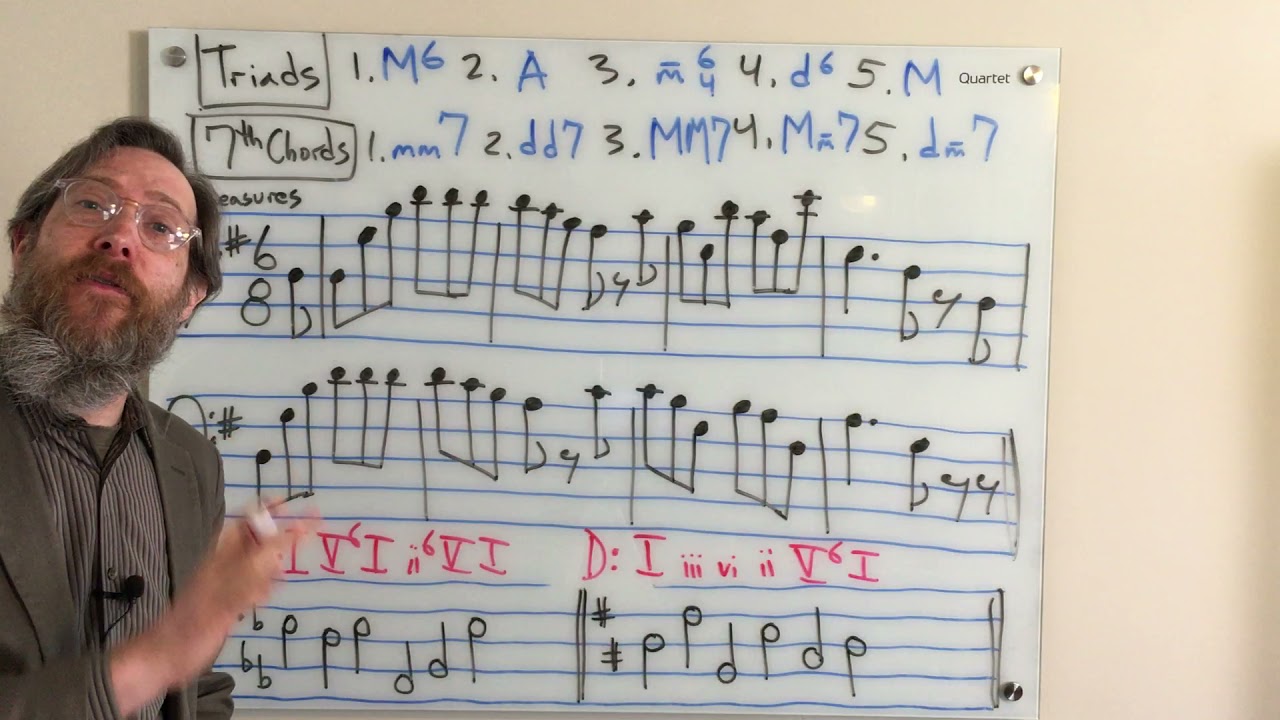 Triads 1. M6 2. A 3. m̄ 6/4 4. d6 5. M Quartet
7th Chords 1. mm7 2. dd7 3. MM7 4. Mm̄7 5. dm̄7
6
8
I V6 I ii6 V I D: I iii vi ii V6 I